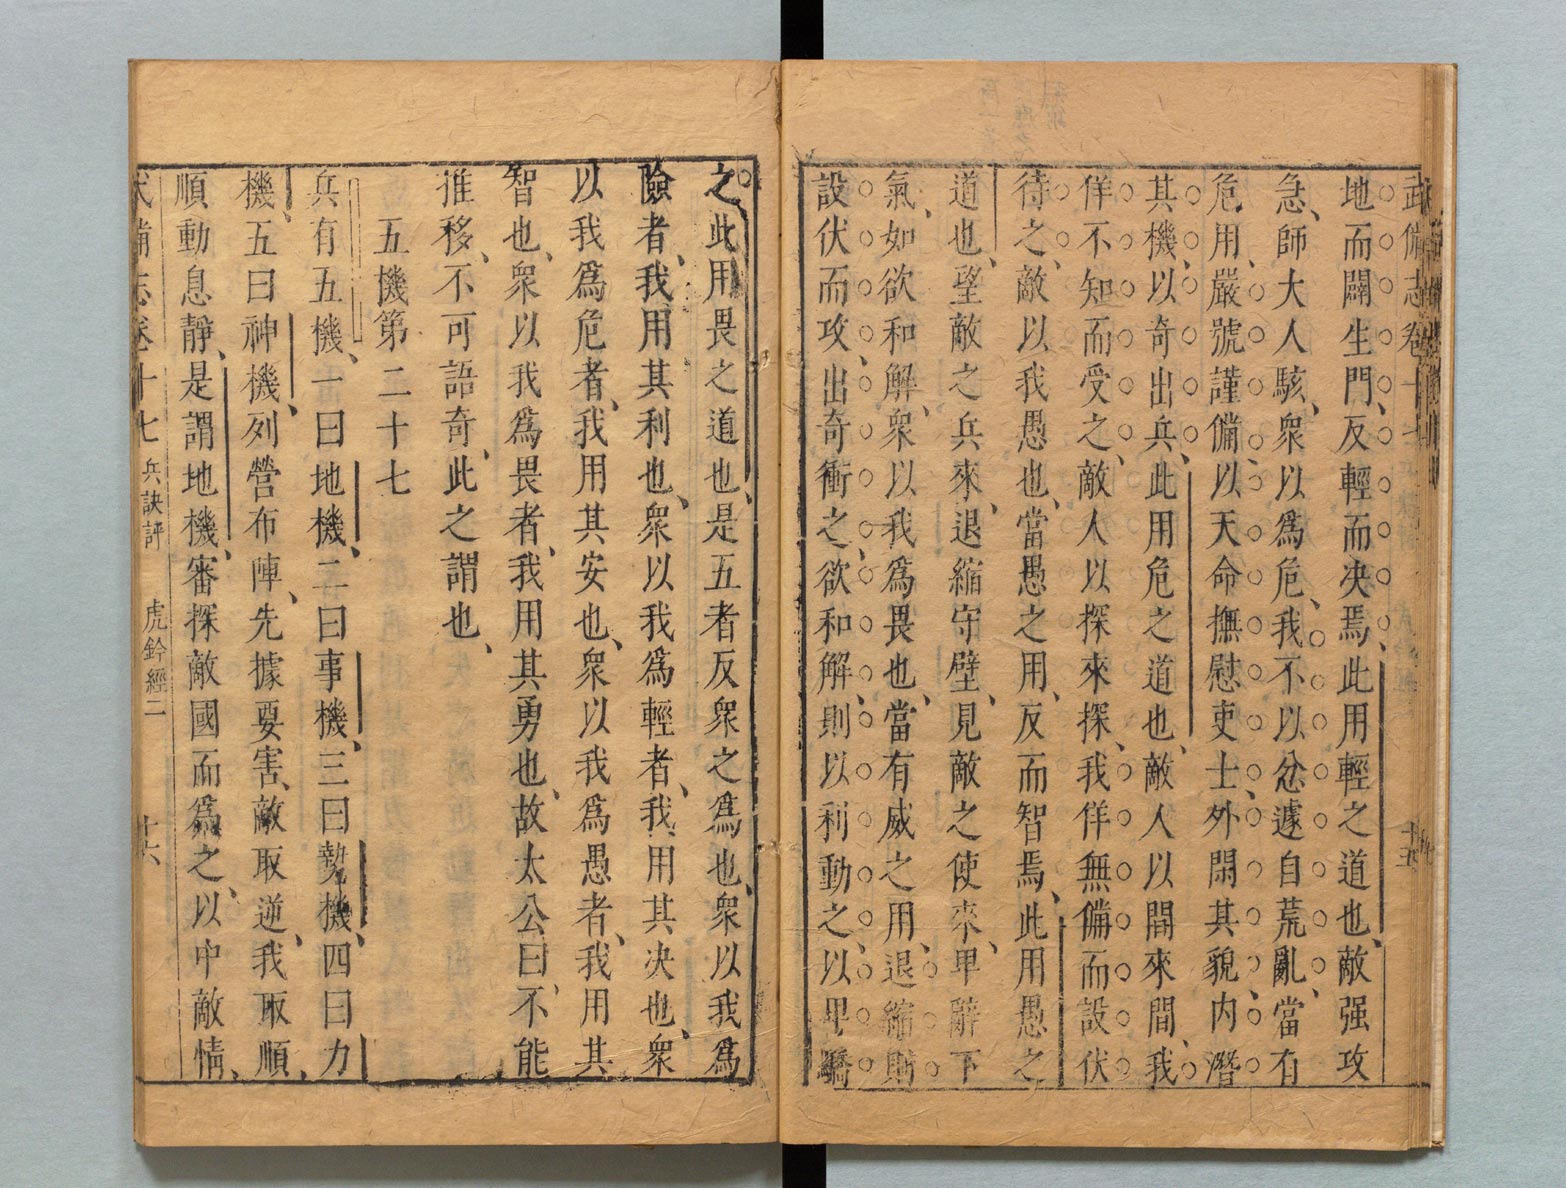 武備志卷十七
地而闢生門、反輕而決焉、此用輕之道也、敵强攻
急、師大人駭、衆以爲危、我不以忿遽自荒亂、當有
危用、嚴號謹備、以天命撫慰吏士、外閑其貌、内潛
其機、以奇出兵、此用危之道也、敵人以間來間、我
佯不知而受之、敵人以探來探、我佯無備而設伏
待之、敵以我愚也、當愚之用、反而智焉、此用愚之
道也、堅敵之兵來、退縮守壁、見敵之使來、卑辭下
氣、如欲和解、衆以我爲畏也、當有威之用、退縮則
設伏而攻、出奇衝之、欲和解、則以利動之、以卑驕
之、此用畏之道也、是五者反衆之爲也、衆以我爲
險者、我用其利也、衆以我爲輕者、我用其決也、衆
以我爲危者、我用其安也、衆以我爲愚者、我用其
智也、衆以我爲畏者、我用其勇也、故太公曰、不能
推移、不可語奇、此之謂也、
五機第二十七
兵有五機、一曰地機、二曰事機、三曰勢機、四曰力
機、五曰神機、列營布陣、先據要害、敵取逆、我取順、
順動息靜、是謂地機、審探敵國而爲之、以中敵情、
武備志卷十七 兵訣評 虎鈐經二 十六